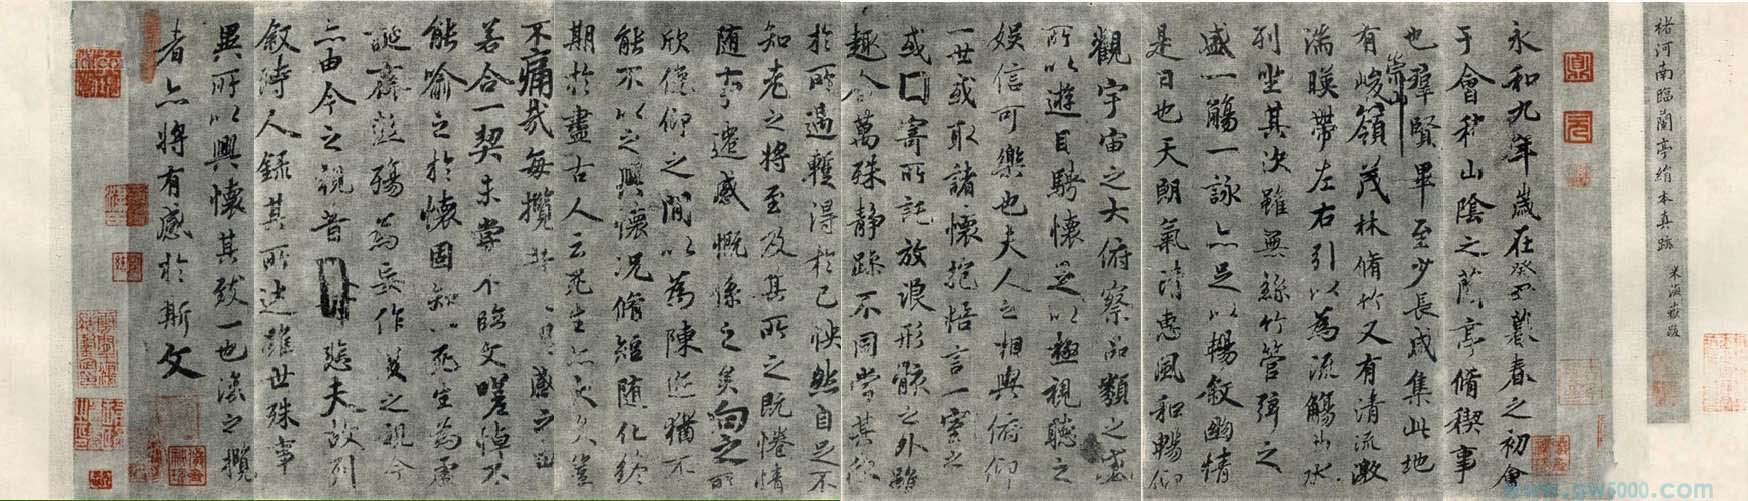 褚河南臨蘭亭絹本真跡 米海嶽跋
永和九年歲在癸丑暮春之初會
于會稽山陰之蘭亭脩稧事
也羣賢畢至少長咸集此地
有崇山峻嶺茂林脩竹又有清流激
湍暎帶左右引以為流觴曲水
列坐其次雖無絲竹管弦之
盛一觴一詠亦足以暢敘幽情
是日也天朗氣清惠風和暢仰
觀宇宙之大俯察品類之盛
所以遊目騁懷足以極視聽之
娛信可樂也夫人之相與俯仰
一世或取諸懷抱悟言一室之
或寄所託放浪形骸之外雖
趣舍萬殊靜躁不同當其欣
於所遇蹔得於己怏然自足不
知老之將至及其所之既惓情
隨事遷感慨係之矣向之所
欣俛仰之閒以為陳迹猶不
能不以之興懷況脩短隨化終
期於盡古人云死生亦大矣豈
不痛哉每攬感之
若合一契未嘗不臨文嗟悼不
能喻之於懷固知一死生為虛
誕齊彭殤為妄作後之視今
亦由今之視昔悲夫故列
敘時人錄其所述雖世殊事
異所以興懷其致一也後之攬
者亦將有感於斯文
www.gw5000.com